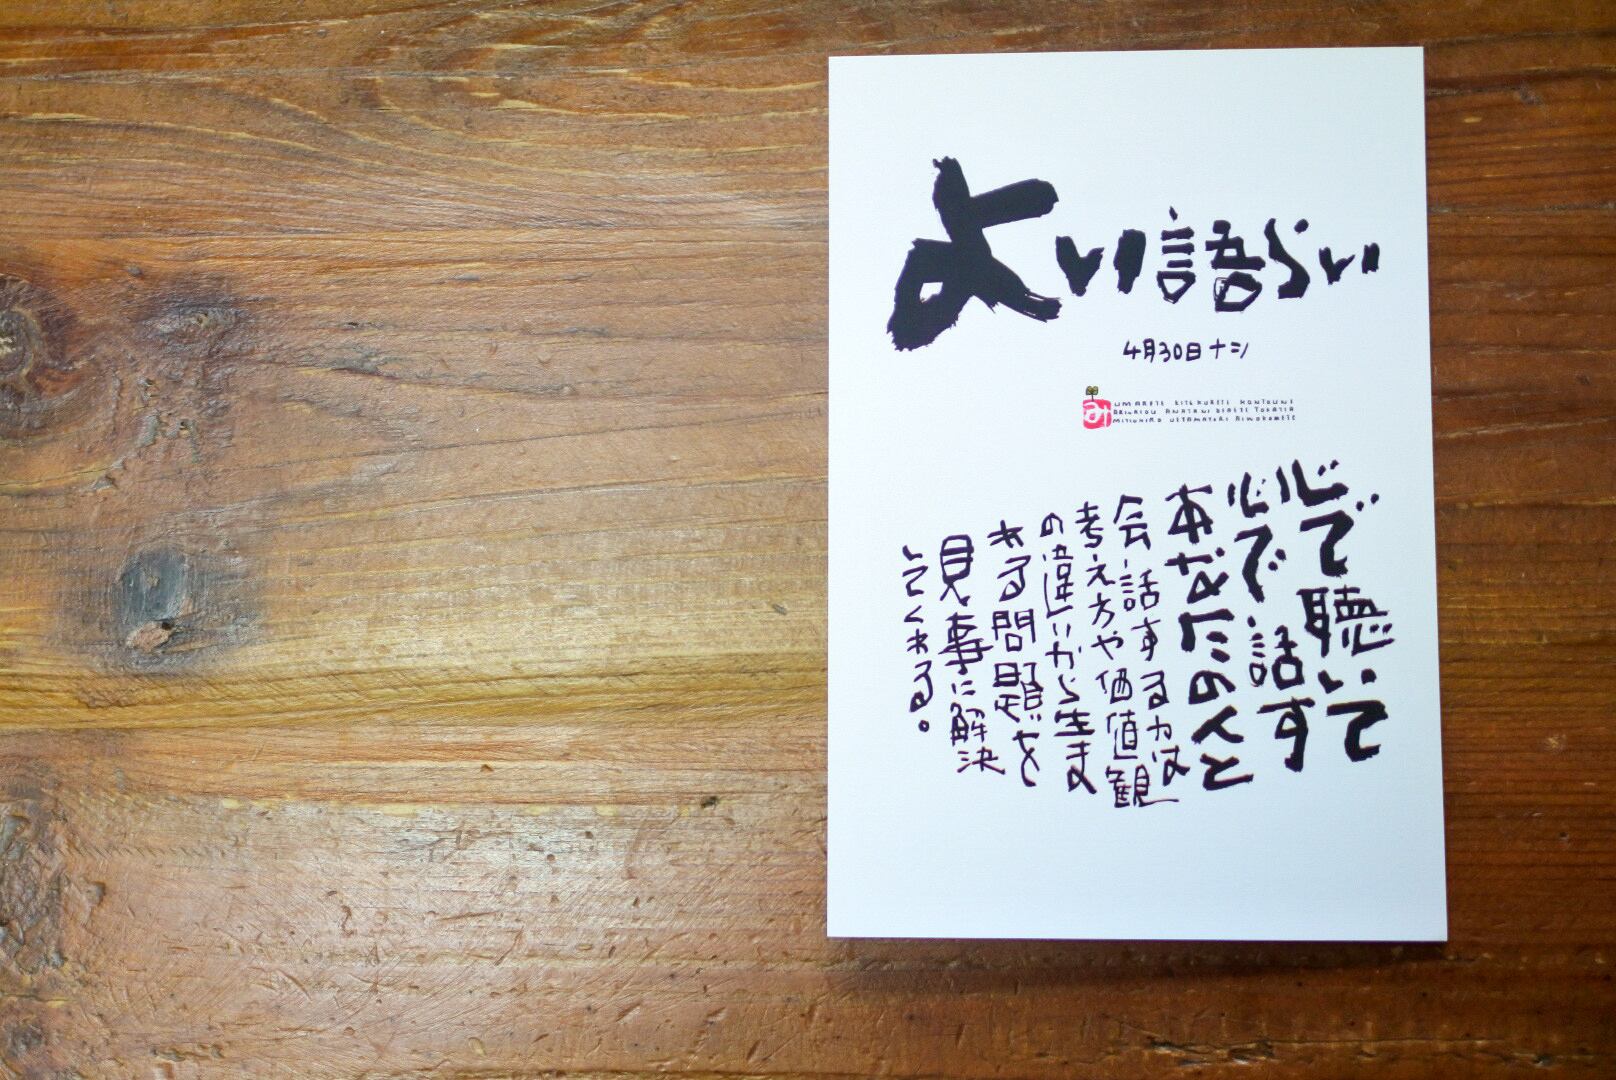 よい語らい
4月30日ナシ
み
UMARETE KITEKURETE HONTOUNI
ARIGATOU ANATANI DEAETE YOKATTA
心で聴いて
心で話す
あなたの人と
会話する力は
考え方や価値観
の違いから生ま
れる問題を
見事に解決
してくれる。